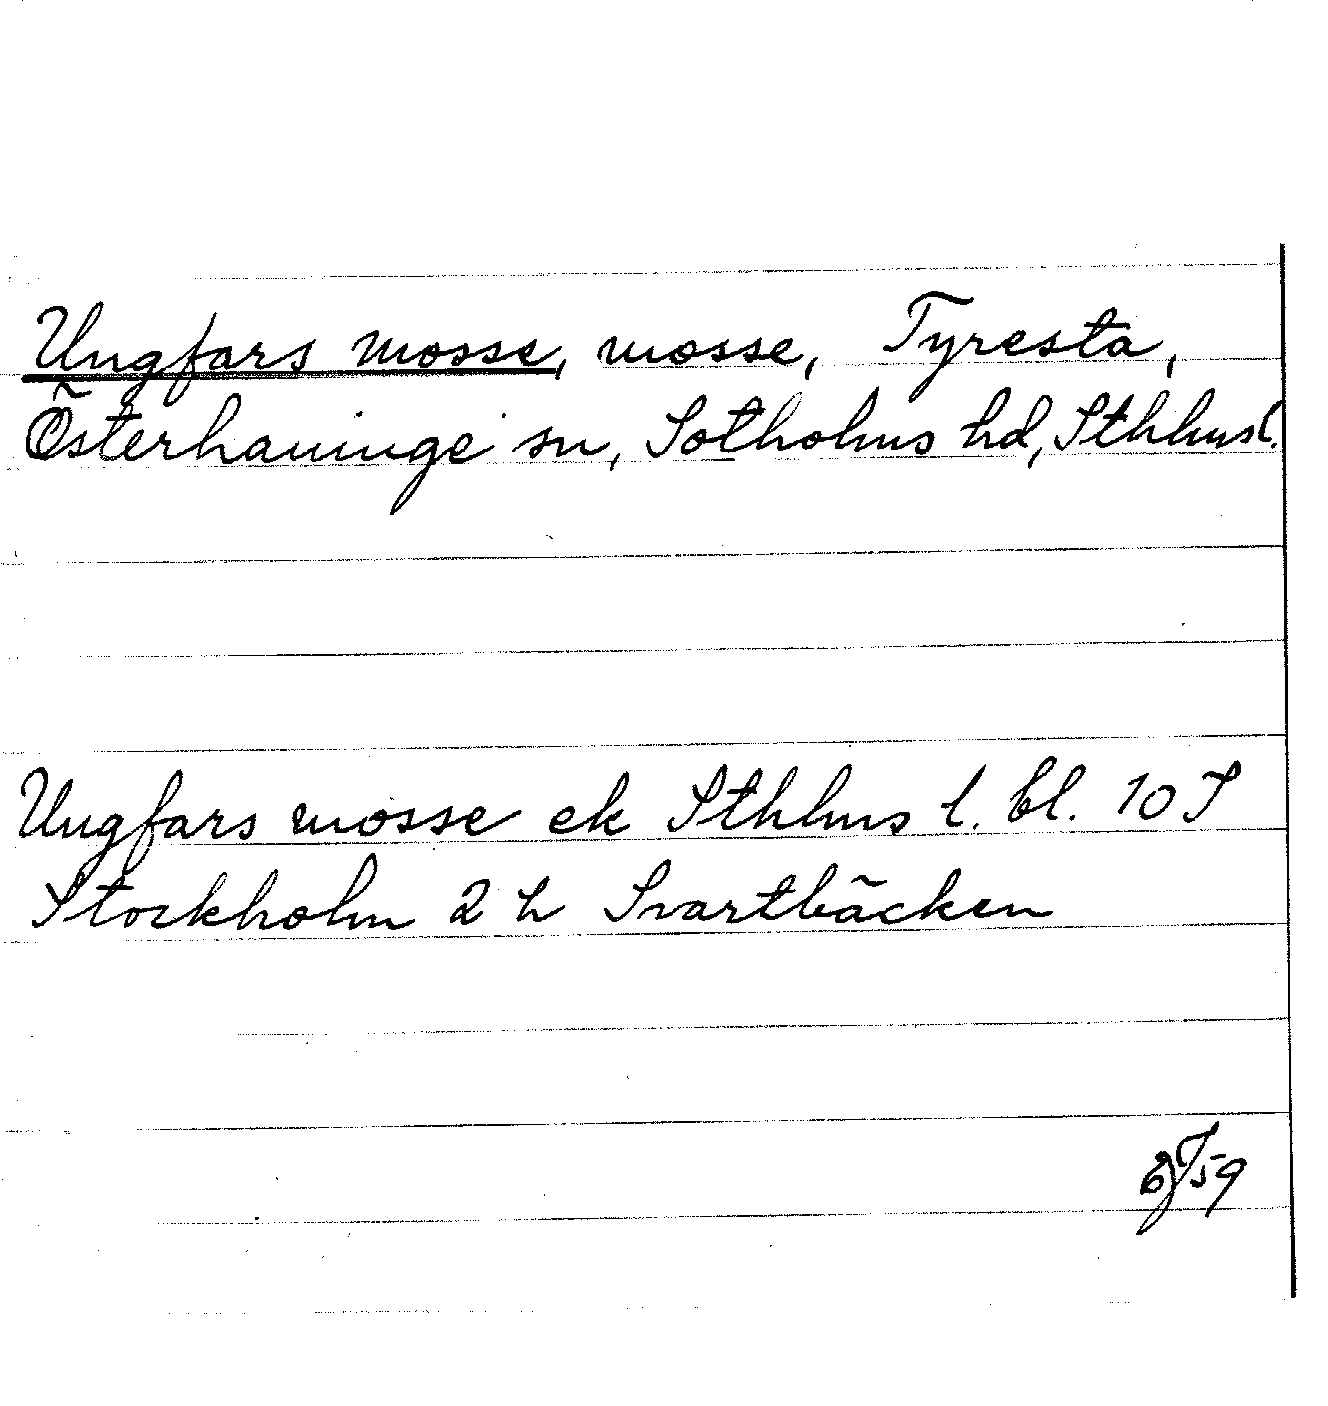 Ungfars mosse, mosse, Tyresta,
Österhaninge sn, Sotholms hd, Sthlms l.
Ungfars mosse ek Sthlms l. bl. 10 I
Stockholm 2 h Svartbäcken
59